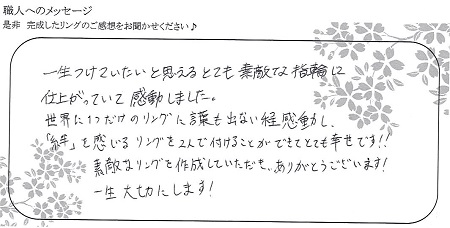 職人へのメッセージ
是非 完成したリングのご感想をお聞かせください♪
一生つけていたいと思えるとても素敵な指輪に
仕上がっていて感動しました。
世界に1つだけのリングに言葉も出ない程感動し、
「絆」を感じるリングを2人で付けることができてとても幸せです!!
素敵なリングを作成していただき、ありがとうございます!
一生大切にします!